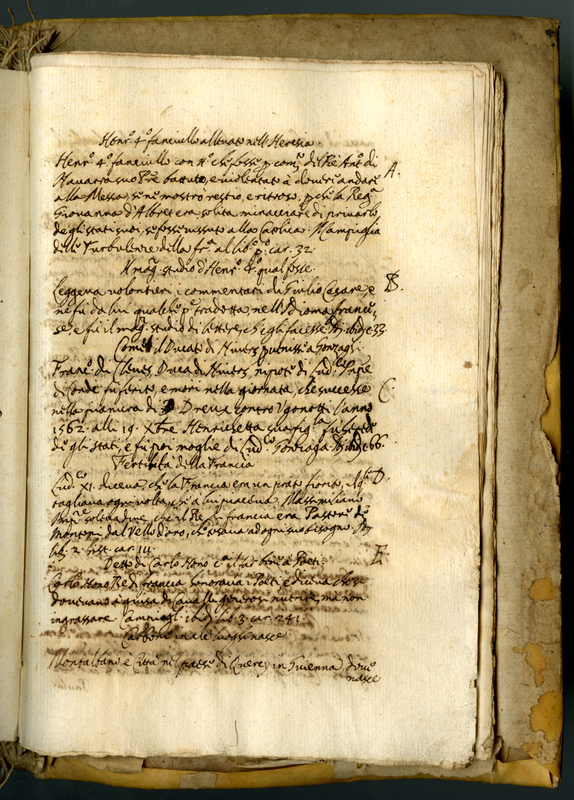 Henr.º 4.º fanciullo allevato nell'Heresia.
Henr.º 4.º fanciullo con tt.º che fosse p com. di Rè Ant.º di
Navarra suo Pře battuto, e violentato à dover andare A.
alla Messa, si ne mostrò restio, e ritroso, p che la Reg.ª
Giovanna d'Albret era solita minacciare di privarlo
de gli stati suoi, se fosse vissuto alla Catolica. Mampiglia
delle Turbulenze della fr.ª al lib.º p.º car. 32.
Il mag. studio d'Henr.º 4.º qual fosse.
Leggeva volontieri i commentarij di Giulio Cesare, e B.
ne fù da lui qualche p.te tradotta, nell'Idioma france-
se, e fù il mag. studio di lettere, ch'egli facesse. ibid. 33
Come il Ducato di Nivers pervenisse a Gonzaghi.
Franc.º di Cleves Duca di Nivers nipote di Lud.co Prñpe
di Condè fù ferito, e morì nella giornata, che successe C.
nella pianura di Dreux contro Vgonotti l'anno
1562. alli 19. Xbre Henrichetta sua fig.la fù herede
de gli stati, e fù poi moglie di Lud.co Gonzaga. ibid. 66.
Fertilità della Francia
Lud.co XI. diceva, che la Francia era un prato fiorito, ch'egli D.
tagliava ogni volta, che a lui piaceva. Massimiliano
Imp.re soleva dire, che il Rè di francia era Pastore di
montoni dal Vello d'oro, che tosava ad ogni suo bisogno.
lib. 2. hist. car. 14.
Detto di Carlo Nono a Poeti. E.
Carlo Nono Rè di Francia honorava i Poeti, e diceva che si
dovevano à guisa di Cavalli generosi nutrire, ma non
ingrassare. Campigl. ibid. lib. 3. car. 241.
nasce
Montalbano è Città nel paese di Querci in Guienna dove
nasce